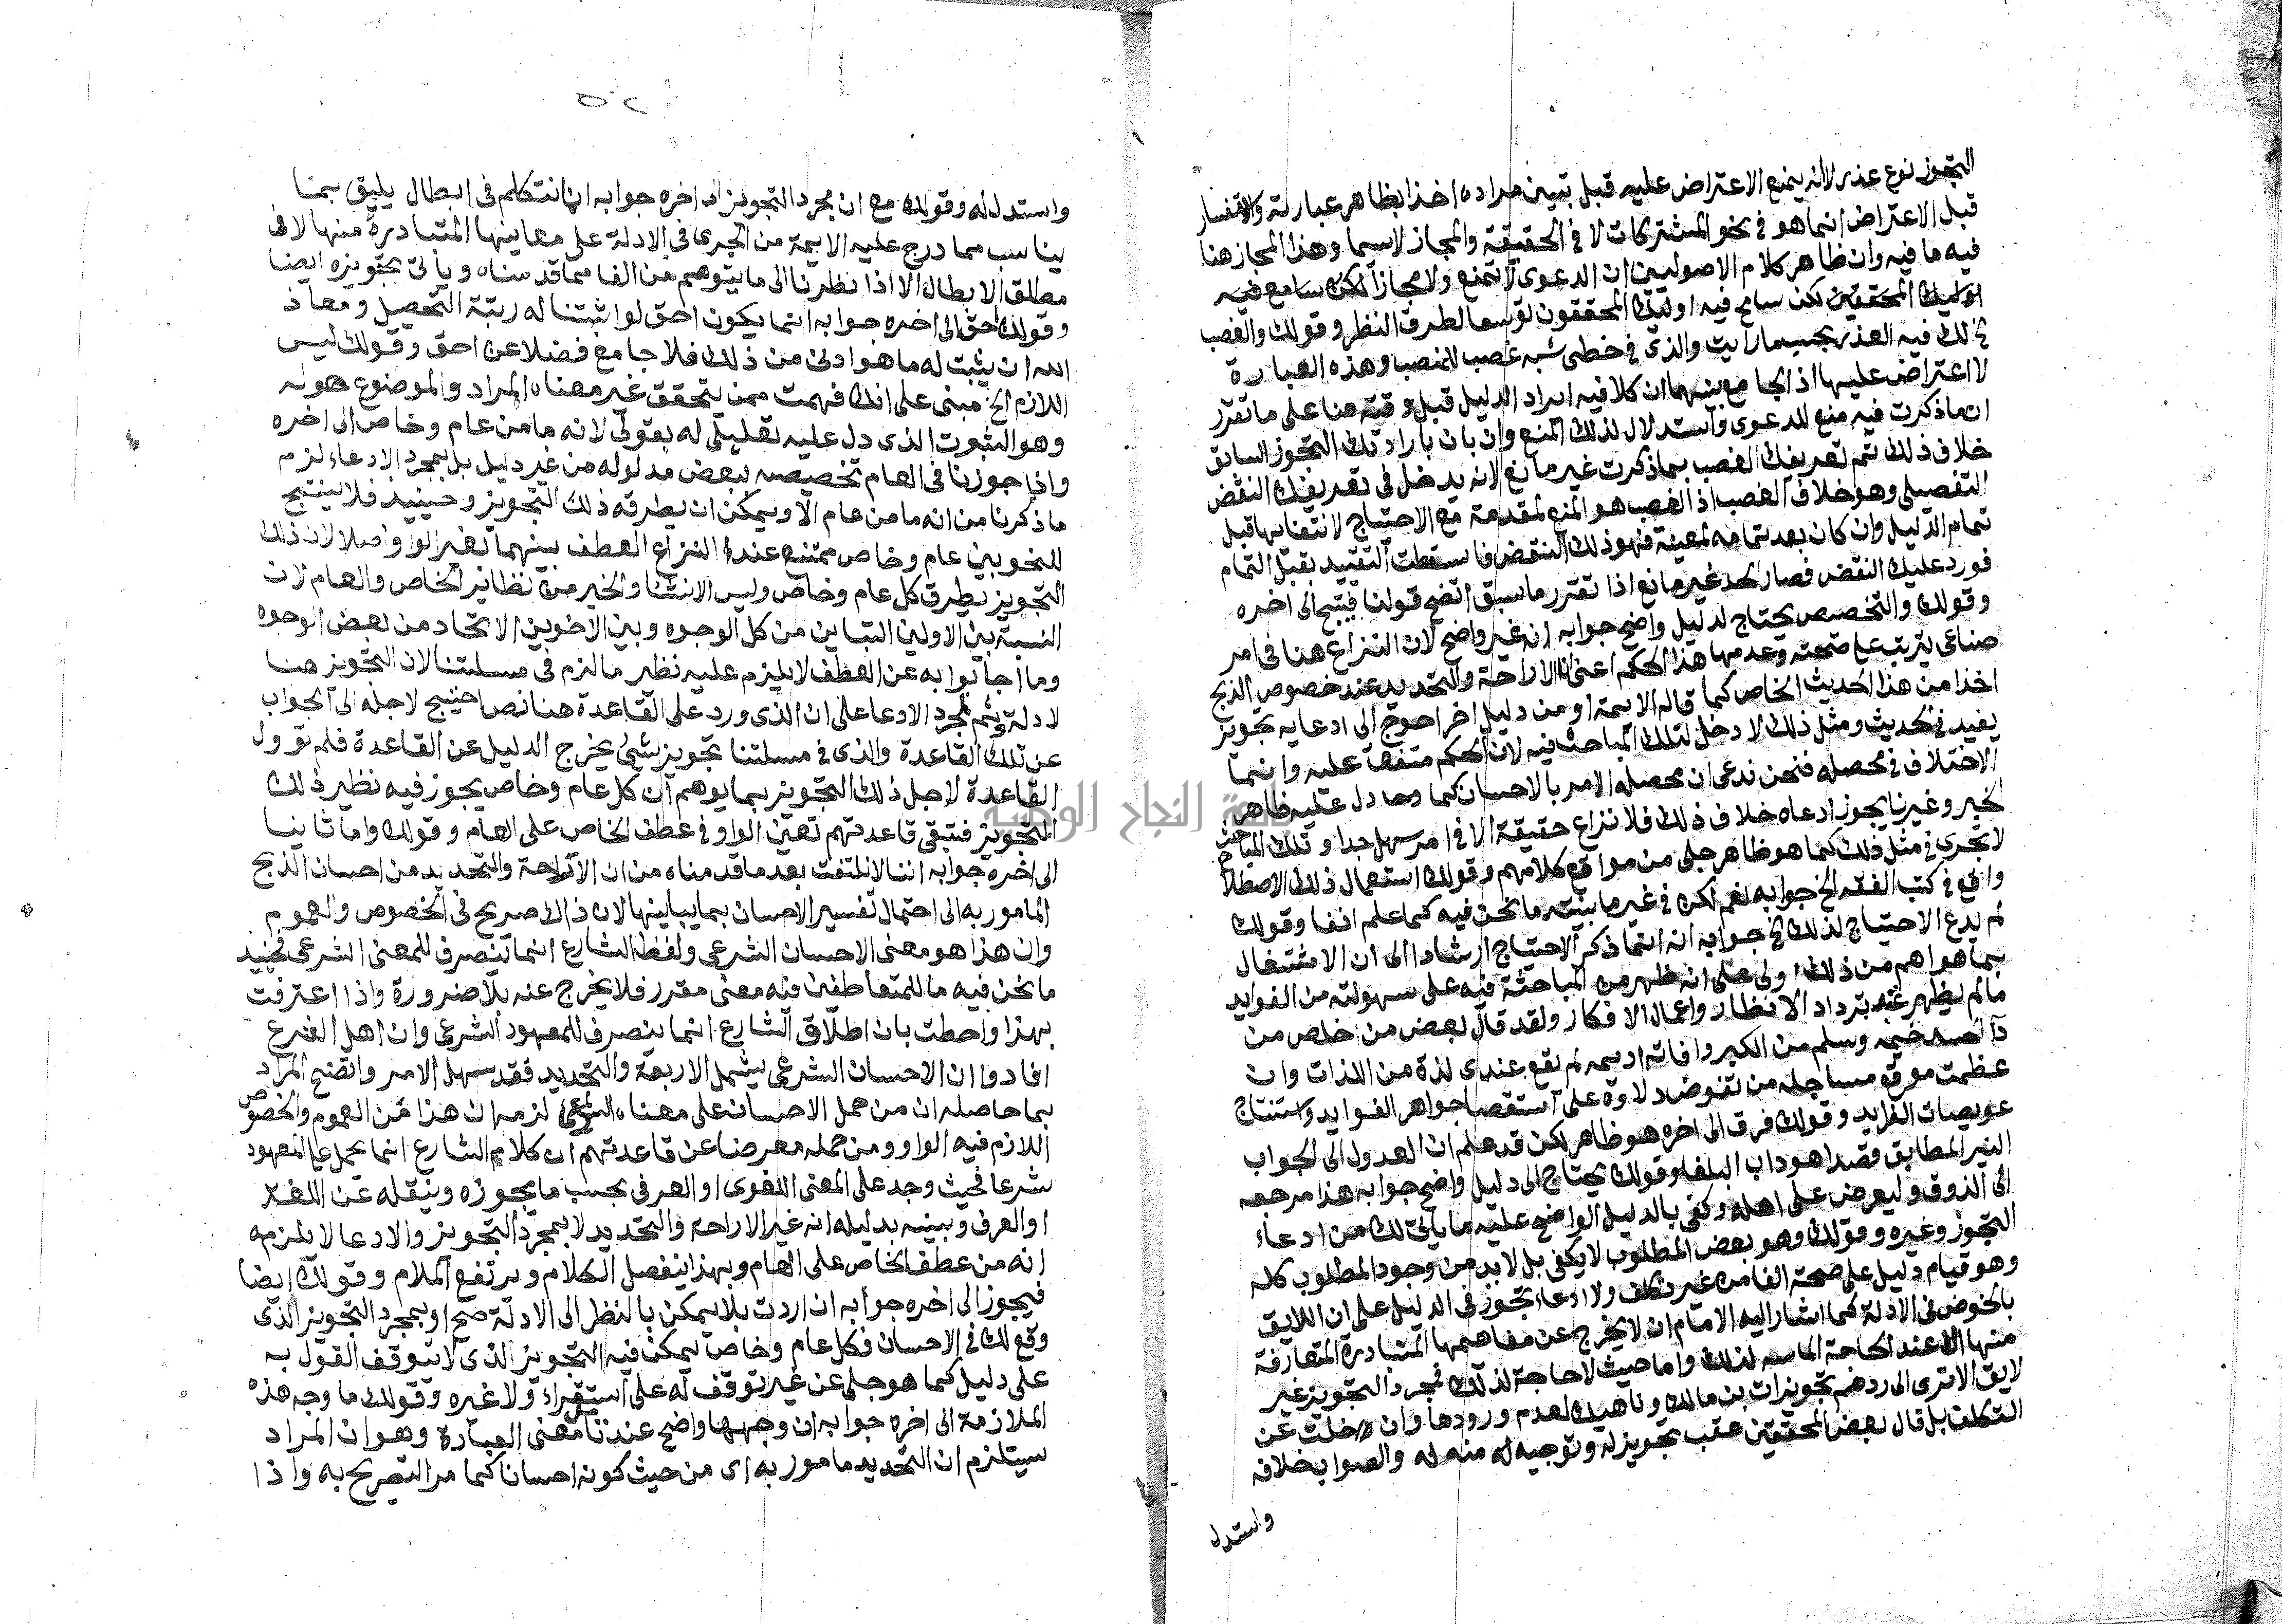 التجوز نوع عذر لانه يمنع الاعتراض عليه قبل تبيين مراده اخذا بظاهر عبارته والاستفسار
قبل الاعتراض انما هو في نحو المشتركات لا في الحقيقة والمجاز لاسيما وهذا المجاز هنا
فيه ما فيه وان ظاهر كلام الاصوليين ان الدعوى لا تمنع ولا مجازا لكن سامح فيه
اوليك المحققين لكن سامح فيه اوليك المحققون توسعا لطرق النظر وقولك والغصب
لك فيه العذر بحسب ما رايت والذي في خطى شبه غصب للمنصب وهذه العبارة
لا اعتراض عليها اذ الجامع بينهما ان كلا فيه ايراد الدليل قبل وقته هنا على ما تقرر
ان ما ذكرت فيه منع للدعوى واستدلال لذلك المنع وان بان بارادتك التجوز السابق
خلاف ذلك ثم تعريفك الغصب بما ذكرت غير مانع لانه يدخل في تعريفك النقض
التفصيلي وهو خلاف الغصب اذ الغصب هو المنع لمقدمة مع الاحتياج لانتفائها قبل
تمام الدليل وان كان بعد تمامه لمعينة فهو ذلك النقض فاسقطت التقييد بقبل التمام
فورد عليك النقض فصار الحد غير مانع اذا تقرر ما سبق اتضح قولنا فيتبح الى اخره
وقولك والتخصيص يحتاج لدليل واضح جوابه انه غير واضح لان النزاع هنا في امر
صناعي يترتب على صحته وعدمها هذا الحكم اعنى الاراحة والتحديد عند خصوص الذبح
اخذا من هذا الحديث الخاص كما قاله الايمة او من دليل اخر احوج الى ادعايه تجويز
يفيد في الحديث ومثل ذلك لا دخل لتلك المباحث فيه لان الحكم متفق عليه وانما
الاختلاف في محصله فنحن ندعي ان محصله الامر بالاحسان كما وما دل عليه ظاهر
الخبر وغيرنا يجوز ادعاه خلاف ذلك فلا نزاع حقيقة الا في امر سهل جدا وتلك المباحث
لا تجرى في مثل ذلك كما هو ظاهر جلى من مواقع كلامهم وقولك استعمال ذلك الاصطلاح
واقع في كتب الفقه الخ جوابه نعم لكن في غير ما بينته ما نحن فيه كما علم انفا وقولك
لم يدع الاحتياج لذلك الخ جوابه انه انما ذكر الاحتياج ارشادا الى ان الاشتغال
بما هو اهم من ذلك اولى على انه ظهر من المباحثة فيه على سهولته من الفوايد
مالم يظهر غبه ترداد الانظار واعمال الافكار ولقد قال بعض من خلص من
دا الحسد خيمه وسلم من الكبر وافاته اديمه لم تقع عندى لذة من اللذات وان
عظمت موقع مساجلة من تفوض دلاوه على استقصا جواهر الفوايد واستنتاج
عويصات الفرايد وقولك فرق الى اخره هو ظاهر لكن قد علم ان العدول الى الجواب
الغير المطابق قصدا هو داب البلغا وقولك يحتاج الى دليل واضح جوابه هذا مرجعه
الى الذوق وليعرض على اهله وكفى بالدليل الواضح عليه ما ياتي لك من ادعاء
التجوز وغيره وقولك وهو بعض المطلوب لا يكفي بل لا بد من وجود المطلوب كله
وهو قيام دليل على صحة الفا من غير تكلف ولا ادعاء تجوز في الدليل على ان اللايق
بالخوض في الادلة كما اشار اليه الامام ان لا يخرج عن مفاهيمها المتبادرة المتعارفة
منها الا عند الحاجة الماسة لذلك واما حيث لا حاجة لذلك فمجرد التجويز غير
لايق الا ترى الى ردهم تجويزات بن مالك وناهيك لعدم ورودها وان دخلت عن
التكلف بل قال بعض المحققين عقب تجويز له وتوجيهه له منه له والصواب خلافه
واستدل
٥٢
واستدل له وقولك مع ان مجرد التجويز الى اخره جوابه اننا نتكلم في ابطال يليق بمنا
يناسب مما درج عليه الايمة من الجرى في الادلة على معاينها المتبادرة منها لا في
مطلق الابطال الا اذا نظرنا الى ما يتوهم من الفا مما قدمناه وياتى تجويزه ايضا
وقولك احق الى اخره جوابه انما يكون احق لو اثبتنا له رتبة التحصيل ومعاذ
الله ان يثبت له ما هو ادنى من ذلك فلا جامع فضلا عن احق وقولك ليس
اللازم الخ مبنى على انك فهمت ممن يتحقق غير معناه المراد والموضوع هو له
وهو الثبوت الذى دل عليه تعليلي له بقولى لانه ما من عام وخاص الى اخره
واذا جوزنا في العام تخصيصه لبعض مدلوله من غير دليل بل بمجرد الادعاء لزم
ما ذكرنا من انه ما من عام الا ويمكن ان يطرقه ذلك التجويز وحينيد فلا ينتج
للنحويين عام وخاص ممتنع عند النزاع العطف بينهما بغير الواو اصلا لان ذلك
التجويز يطرق كل عام وخاص وليس الانشا والخبر من نظاير الخاص والعام لان
النسبة بين الاولين التباين من كل الوجوه وبين الاخرين الاتحاد من بعض الوجوه
وما اجابوا به عن العطف لا يلزم عليه نظير ما لزم في مسلتنا لان التجويز هنا
لادلة وثم لمجرد الادعا على ان الذى ورد على القاعدة هنا نص احتيج لاجله الى الجواب
عن تلك القاعدة والذى في مسلتنا تجويز شي يخرج الدليل عن القاعدة فلم تؤول
القاعدة لاجل ذلك التجويز بما يوهم ان كل عام وخاص يجوز فيه نظير ذلك
التجويز فتبقى قاعدتهم تعين الواو في عطف الخاص على العام وقولك واما ثانيا
الى اخره جوابه اننا لا نلتفت بعد ما قدمناه من ان الاراحة والتحديد من احسان الذبح
المامور به الى احتمال تفسير الاحسان بما يباينها لان ذاك صريح في الخصوص والعموم
وان هذا هو معنى الاحسان الشرعي ولفظ الشارع انما ينصرف للمعنى الشرعي فحينيد
ما نحن فيه ما للمتعاطفين فيه معنى مقرر فلا يخرج عنه بلا ضرورة واذا اعترفت
بهذا واحطت بان اطلاق الشارع انما ينصرف للمعهود الشرعي وان اهل الشرع
افادوا ان الاحسان الشرعي يشمل الاربعة والتحديد فقد سهل الامر واتضح المراد
بما حاصله ان من حمل الاحسان على معناه الشرعي لزمه ان هذا من العموم والخصوص
اللازم فيه الواو ومن حمله معرضا عن قاعدتهم ان كلام الشارع انما يحمل على المعهود
شرعا فحيث وجد على المعنى اللغوى او العرفي بحسب ما يجوزه وينقله عن اللغة
او العرف ويبينه بدليله انه غير الاراحة والتحديد لا بمجرد التجويز والادعا لا يلزمه
انه من عطف الخاص على العام وبهذا ينفصل الكلام ويرتفع الملام وقولك ايضا
فيجوز الى اخره جوابه ان اردت بلا يمكن بالنظر الى الادلة صح او بمجرد التجويز الذى
وقع لك في الاحسان فكل عام وخاص يمكن فيه التجويز الذى لا يتوقف القول به
على دليل كما هو جلى عن غير توقف له على استقراء ولا غيره وقولك ما وجه هذه
الملازمة الى اخره جوابه ان وجهها واضح عندنا معنى العبارة وهو ان المراد
سيتلزم ان التحديد مامور به اى من حيث كونه احسانا كما مر التصريح به واذا